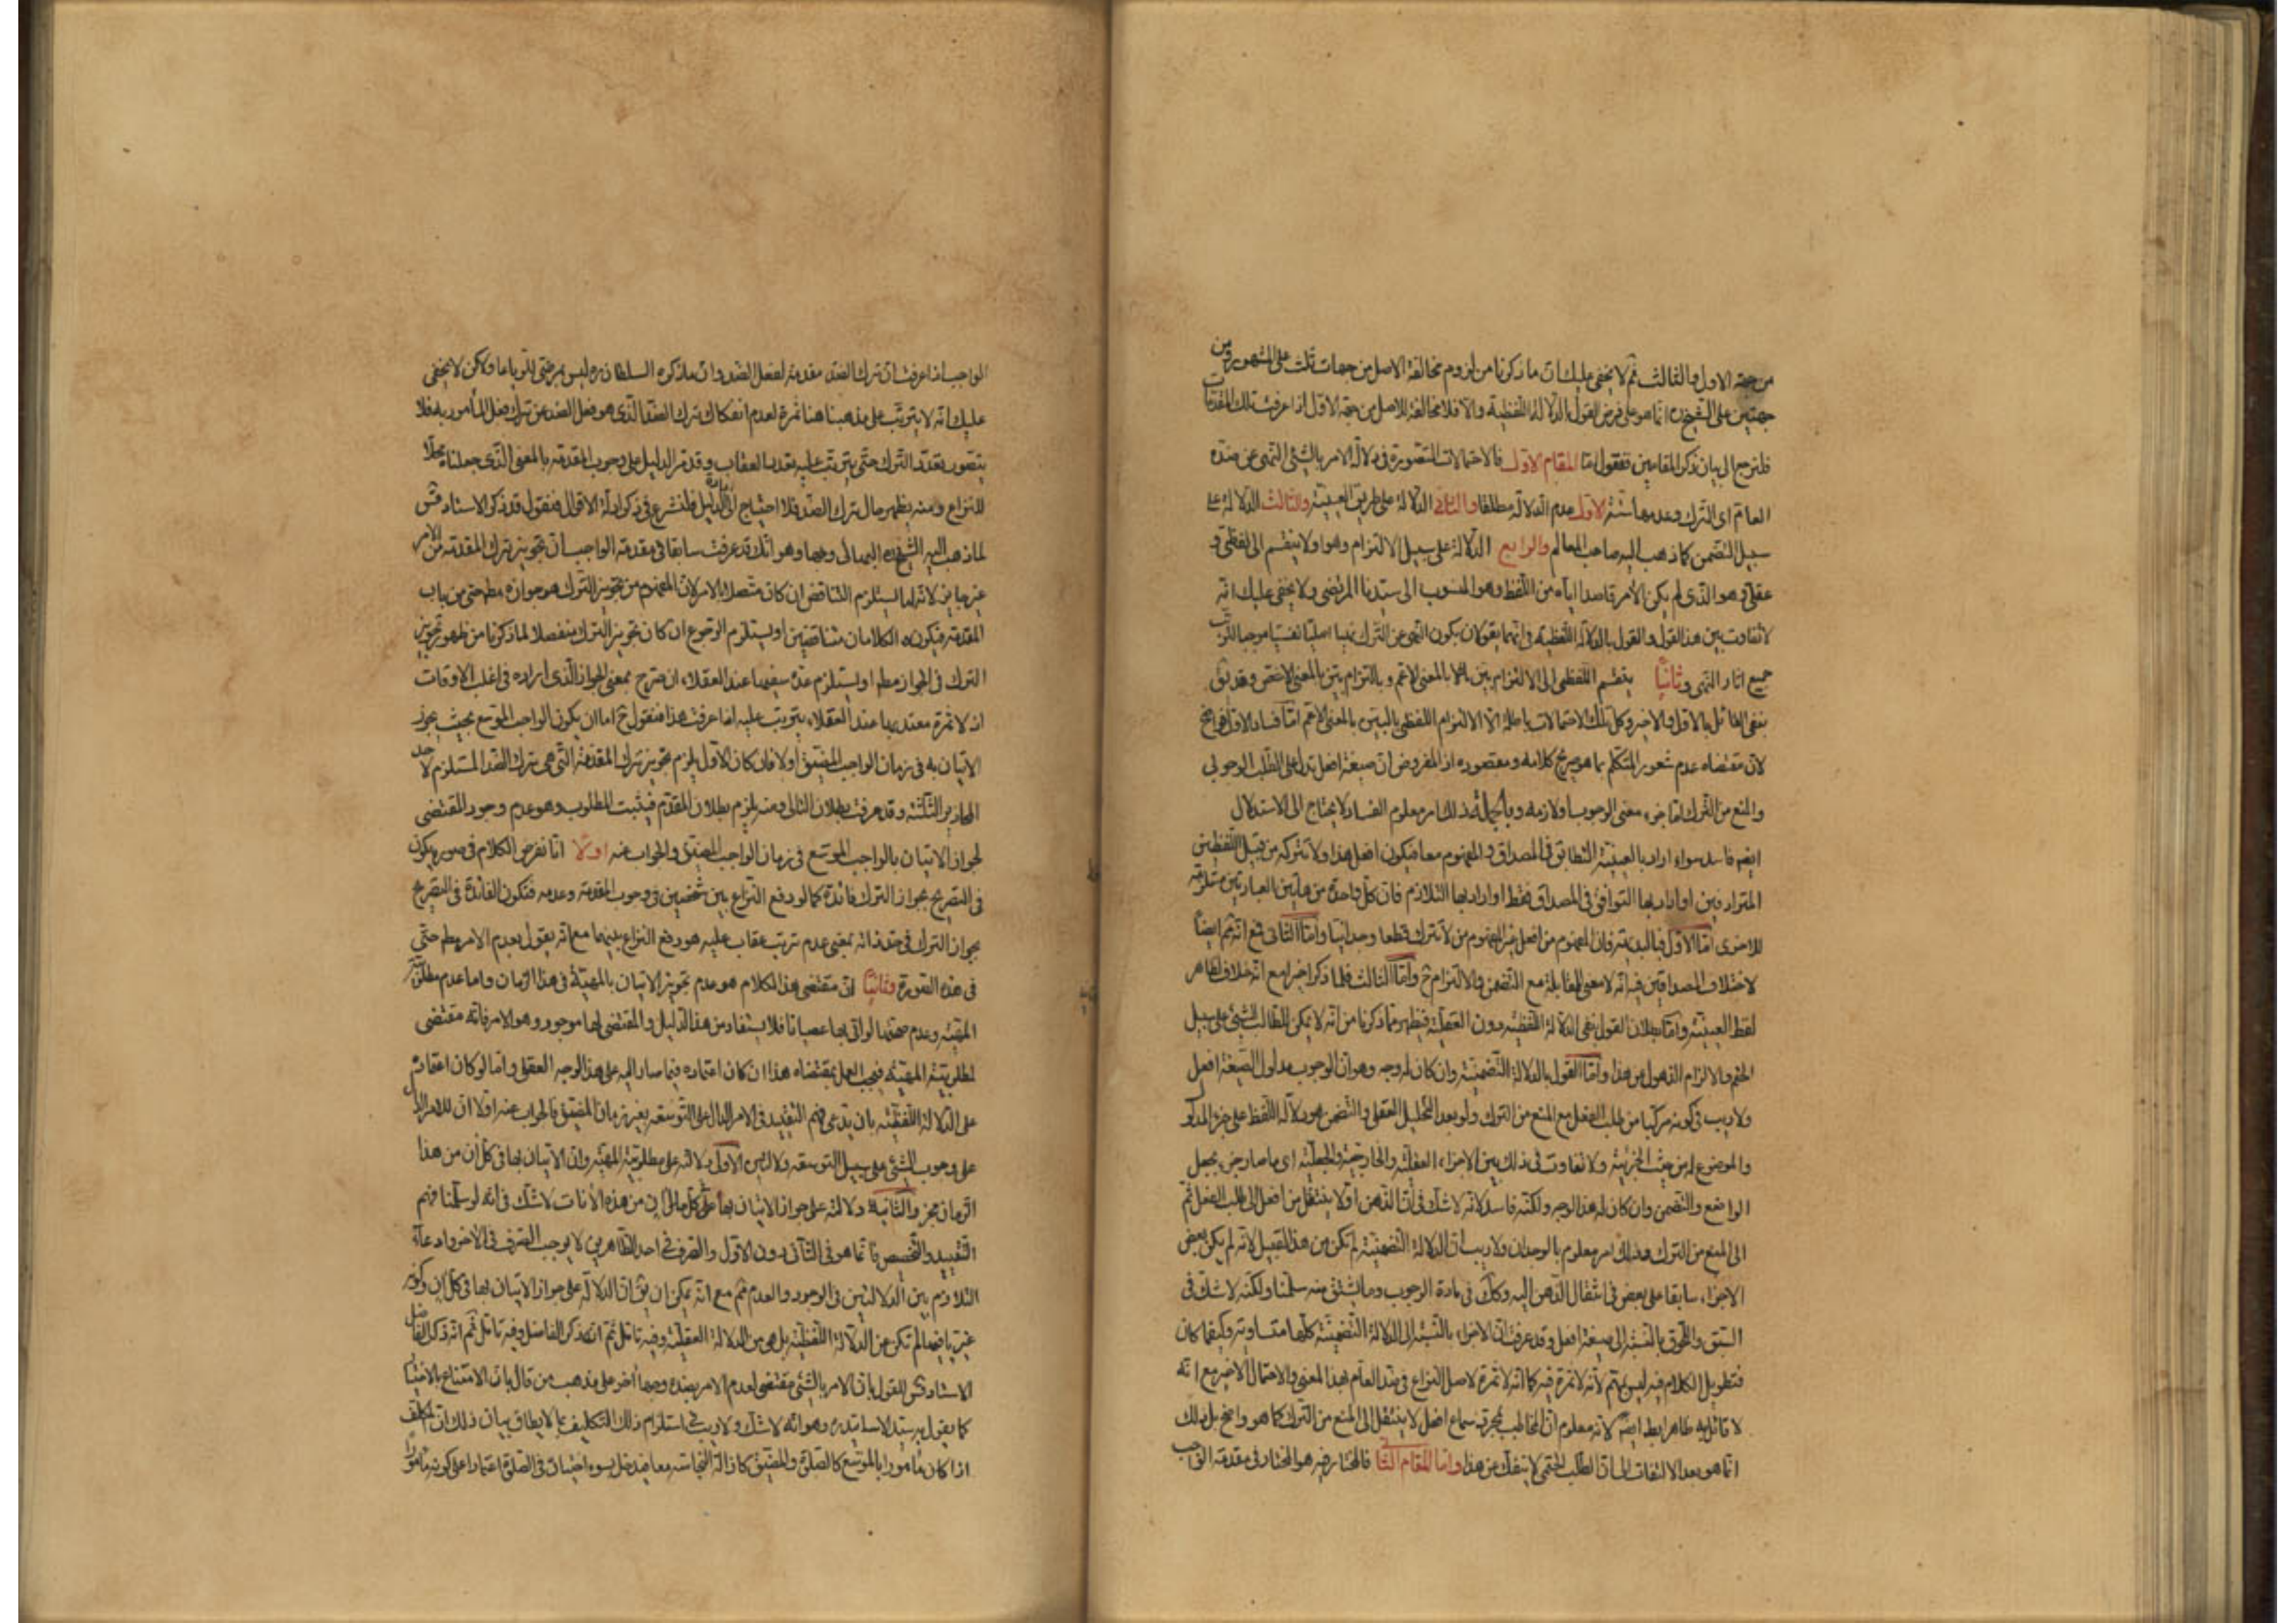 من جهة الاول والثالث ثم لا يخفى عليك ان ما ذكرنا من لزوم مخالفة الاصل من جهات ثلث على المشهور ومن
جهتين على الشيخ ره انما هو على فرض القول بالدلالة اللفظية والا فلا مخالفة للاصل من جهة الاول اذا عرفت تلك المقدمات
فلنرجع الى بيان ذكر المقامين فنقول اما المقام الاول فالاحتمالات المتصورة فى دلالة الامر بالشئ النهى عن ضده
العام اى الترك وعدمها ستة الاول عدم الدلالة مطلقا والثانى الدلالة على طريق العينية والثالث الدلالة على
سبيل التضمن كما ذهب اليه صاحب المعالم والرابع الدلالة على سبيل الالتزام وهو اولا ينقسم الى لفظى و
عقلى وهو الذى لم يكن الآمر قاصدا اياه من اللفظ وهو المنسوب الى سيدنا المرتضى ولا يخفى عليك انه
لا تفاوت بين هذا القول والقول بالدلالة اللفظية فى انهما يقولان بكون النهى عن الترك نهيا اصليا نفسيا موجبا لترتب
جميع اثار النهى وثانيا ينقسم اللفظى الى الالتزام بين بالمعنى الاعم وبالتزام بين بالمعنى الاخص وقد
نفى القائل بالاول والاخير وكل تلك الاحتمالات باطلة الا الالتزام اللفظى بالبين بالمعنى الاعم اما فساد الاول فواضح
لان مقتضاه عدم شعور المتكلم بما هو صريح كلامه ومقصوده اذ المفروض ان صيغة افعل تدل على الطلب الوجوبى
والمنع من الترك اما جزء معنى الوجوب او لازمه وبالجملة ذلك امر معلوم الفساد لا يحتاج الى الاستدلال
ايضا فاسد سواء اراد بالعينية التطابق فى المصداق والمفهوم معا فيكون افعل هذا ولا تتركه من قبيل اللفظين
المترادفين او اراد بها التوافق فى المصداق فقط او اراد بها التلازم فان كل واحدة من هاتين العبارتين مستلزمة
للاخرى اما الاول فبالبديهة فان المفهوم من افعل غير المفهوم من لا تترك قطعا وجدانيا واما الثانى فمع انه ثم ايضا
لاختلاف المصداقين فيه انه لا معنى للمقابلة مع التضمن والالتزام ح واما الثالث فلما ذكر اخيرا مع انه خلاف ظاهر
لفظ العينية واما بطلان القول بنفى الدلالة اللفظية دون العقلية فيظهر مما ذكرنا من انه لا يمكن للطالب للشئ على سبيل
الحتم والالزام الذهول عن هذا واما القول بالدلالة التضمنية وان كان له وجه وهو ان الوجوب مدلول الصيغة افعل
ولا ريب فى كونه مركبا من طلب الفعل مع المنع من الترك ولو بعد التحليل العقلى والتضمن هو دلالة اللفظ على جزء المدلول
والموضوع له من حيث الجزئية ولا تفاوت فى ذلك بين الاجزاء العقلية والخارجية والجعلية اى ما صار جزء بجعل
الواضع والتضمن وان كان له هذا الوجه ولكنه فاسد لانه لا شك فى ان الذهن اولا ينتقل من افعل الى طلب الفعل ثم
الى المنع من الترك وذلك امر معلوم بالوجدان ولا ريب ان الدلالة التضمنية لم تكن من هذا القبيل لانه لم يكن بعض
الاجزاء سابقا على بعض فى انتقال الذهن اليه وكك فى مادة الوجوب وما يشتق منه سلمنا ولكنه لا شك فى
السبق واللحوق بالنسبة الى صيغة افعل وقد عرفت ان الاجزاء بالنسبة الى الدلالة التضمنية كلها متساوية وكيفما كان
فتطويل الكلام فيه ليس بمهم لانه لا ثمرة فيه كما انه لا ثمرة لاصل النزاع فى ضد العام بهذا المعنى والاحتمال الاخير مع انه
لا قائل به ظاهرا بط ايضا لانه معلوم ان المخاطب بمجرد سماع افعل لا ينتقل الى المنع من الترك كما هو واضح بل ذلك
انما هو بعد الالتفات الى ان الطلب الحتمى لا ينفك عن هذا واما المقام الثانى فالمختار فيه هو المختار فى مقدمة الواجب
الواجب اذا عرفت ان ترك الضد مقدمة لفعل الضد وان ما ذكره السلطان ره ليس بمرضى لنا ولكن لا يخفى
عليك انه لا يترتب على مذهبنا هنا ثمرة لعدم انفكاك ترك الضد الذى هو فعل الضد عن ترك فعل المأمور به فلا
يتصور تعدد الترك حتى يترتب عليه تعدد العقاب وقد مر الدليل على وجوب المقدمة بالمعنى الذى جعلناه محلا
للنزاع ومنه يظهر حال ترك الضد فلا احتياج الى اعادة الدليل فلنشرع فى ذكر ادلة الاقوال فنقول قد ذكر الاستاد قدس
لما ذهب اليه الشيخ البهائى وجها وهو انك قد عرفت سابقا فى مقدمة الواجب ان تجويز ترك المقدمة من الآمر
غير جايز لانه اما يستلزم التناقض ان كان متصلا بالامر لان المفهوم من تجويز الترك هو جوازه مط حتى من باب
المقدمة فيكون الكلامان متناقضين او يستلزم الرجوع ان كان تجويز الترك منفصلا لما ذكرنا من ظهور تجويز
الترك فى الجواز مط او يستلزم عده سفيها عند العقلاء ان صرح بمعنى الجواز الذى اراده فى اغلب الاوقات
اذ لا ثمرة معتد بها عند العقلاء يترتب عليه اذا عرفت هذا فنقول ح اما ان يكون الواجب الموسع بحيث يجوز
الاتيان به فى زمان الواجب المضيق اولا فان كان الاول يلزم تجويز ترك المقدمة التى هى ترك الضد المستلزم لاحد
المحاذير الثلثة وقد عرفت بطلان التالى ومنه يلزم بطلان المقدم فيثبت المطلوب وهو عدم وجود المقتضى
لجواز الاتيان بالواجب الموسع فى زمان الواجب المضيق والجواب عنه اولا انا نفرض الكلام فى صورة يكون
فى التصريح بجواز الترك فائدة كما لو دفع النزاع بين شخصين فى وجوب المقدمة وعدمه فتكون الفائدة فى التصريح
بجواز الترك فى حد ذاته بمعنى عدم ترتب عقاب عليه هو رفع النزاع بينهما مع انه يقول بعدم الامر مط حتى
فى هذه الصورة وثانيا ان مقتضى هذا الكلام هو عدم تجويز الاتيان بالمهية فى هذا الزمان واما عدم مطلوبية
المهية وعدم صحتها لو اتى بها عصيانا فلا يستفاد من هذا الدليل والمقتضى لها موجود وهو الامر فانه مقتضى
لمطلوبية المهية فيجب العمل بمقتضاه هذا ان كان اعتماده فيما صار اليه على هذا الوجه العقلى واما لو كان اعتماده
على الدلالة اللفظية بان يدعى فهم التقييد فى الامر الدال على التوسعة بغير زمان المضيق فالجواب عنه اولا ان للامر الدال
على وجوب الشئ على سبيل التوسعة دلالتين الاولى دلالته على مطلوبية المهية وان الاتيان بها فى كل آن من هذا
الزمان مجز والثانية دلالته على جواز الاتيان بها على كل حال فى كل آن من هذه الآنات لا شك فى انه لو سلمنا فهم
التقييد والتخصيص فانما هو فى الثانى دون الاول والتصرف فى احد الظاهرين لا يوجب التصرف فى الاخر وادعاء
التلازم بين الدلالتين فى الوجود والعدم ثم مع انه يمكن ان يق ان الدلالة على جواز الاتيان بها فى كل آن وكونه
غير باقيه لم تكن من الدلالة اللفظية بل هى من الدلالة العقلية وفيه تامل ثم انه ذكر الفاضل وفيه تامل ثم انه ذكر الفاضل
الاستاد قدس للقول بان الامر بالشئ مقتضى لعدم الامر بضده وجها اخر على مذهب من قال بان الامتناع بالاختيار
كما يقول به سيد الاساتيد ره وهو انه لا شك ولا ريب فى استلزام ذلك التكليف بما لا يطاق بيان ذلك ان المكلف
اذا كان مأمورا بالموسع كالصلوة والمضيق كازالة النجاسة معا فدخل بسوء اختياره فى الصلوة اعتمادا على كونه مأمورا